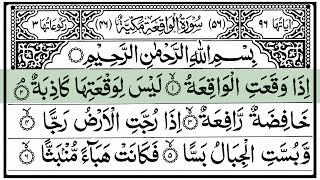 اٰیَاتُهَا ٩٦ (٥٦) سُوْرَةُ الْوَاقِعَةِ مَكِّیَّةٌ (٤٦) رُكُوْعَاتُهَا ٣
بِسْمِ اللّٰهِ الرَّحْمٰنِ الرَّحِیْمِ
اِذَا وَقَعَتِ الْوَاقِعَةُ ١ لَیْسَ لِوَقْعَتِهَا كَاذِبَةٌ ٢
خَافِضَةٌ رَّافِعَةٌ ٣ اِذَا رُجَّتِ الْاَرْضُ رَجًّا ٤
وَّبُسَّتِ الْجِبَالُ بَسًّا ٥ فَكَانَتْ هَبَآءً مُّنْۢبَثًّا ٦